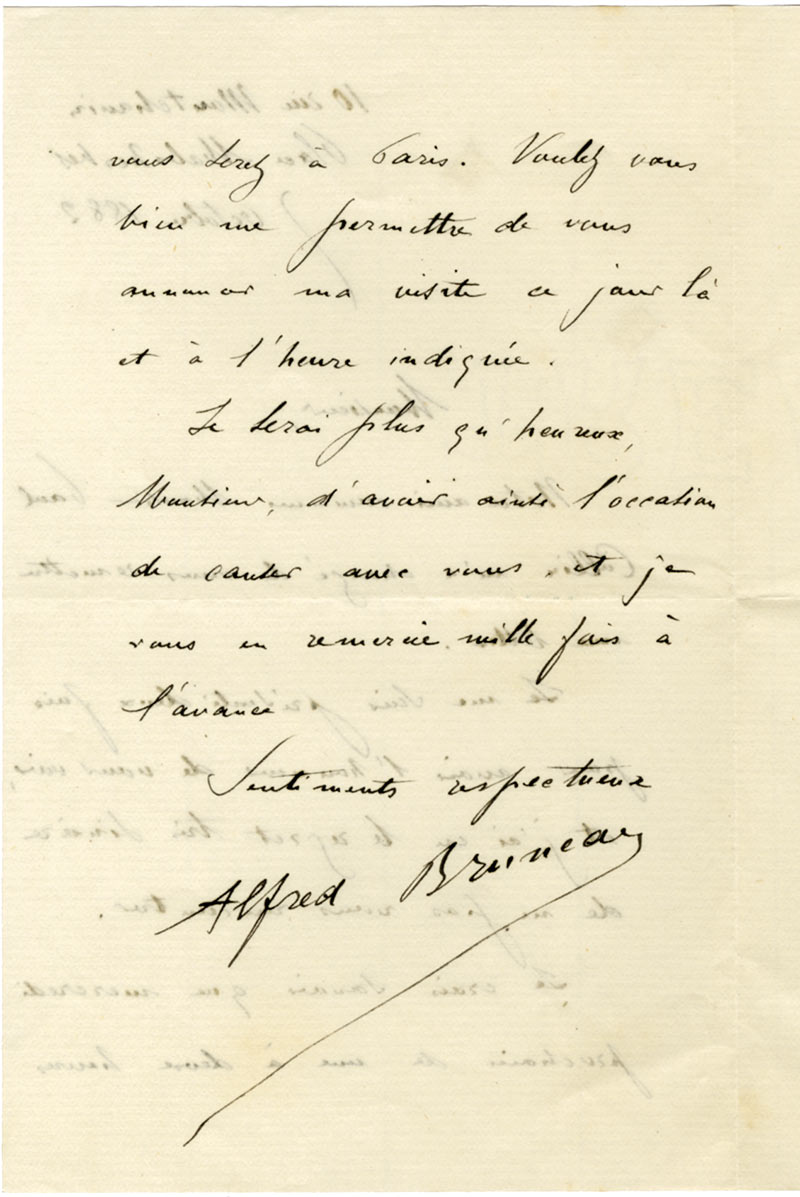 vous serez à Paris. Voulez vous
bien me permettre de vous
annoncer ma visite ce jour là
et à l'heure indiquée.
Je serai plus qu'heureux,
Monsieur, d'avoir ainsi l'occasion
de causer avec vous et je
vous en remercie mille fois à
l'avance
Sentiments respectueux
Alfred Bruneau